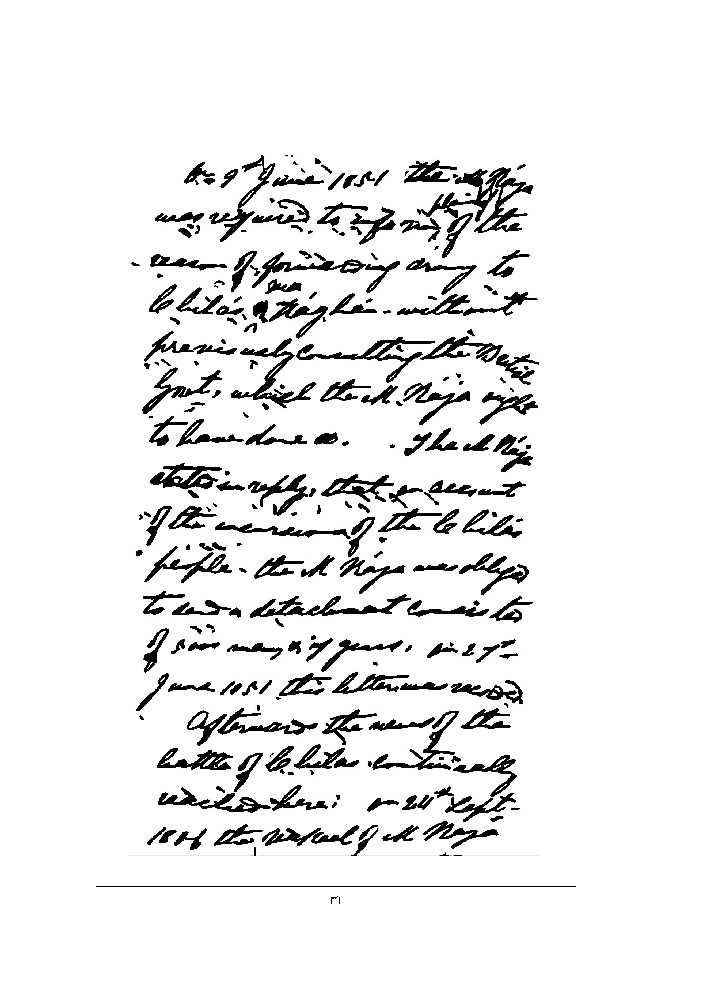 On 9th June 1851 the M Raja
was required to inform of the
reason of forwarding army to
Chilás Rághán without
previously consulting the British
Govt, which the M Rája ought
to have done so. The M Rája
stated in reply, that on account
of the incursions of the Chilás
people - the M Rája was obliged
to send a detachment consisted
of men guns. on 27th
June 1851 this letter was received
Afterwards the news of the
battle of Chilas continually
reached here; on 24th Sept-
the Vakeel of M Rájá